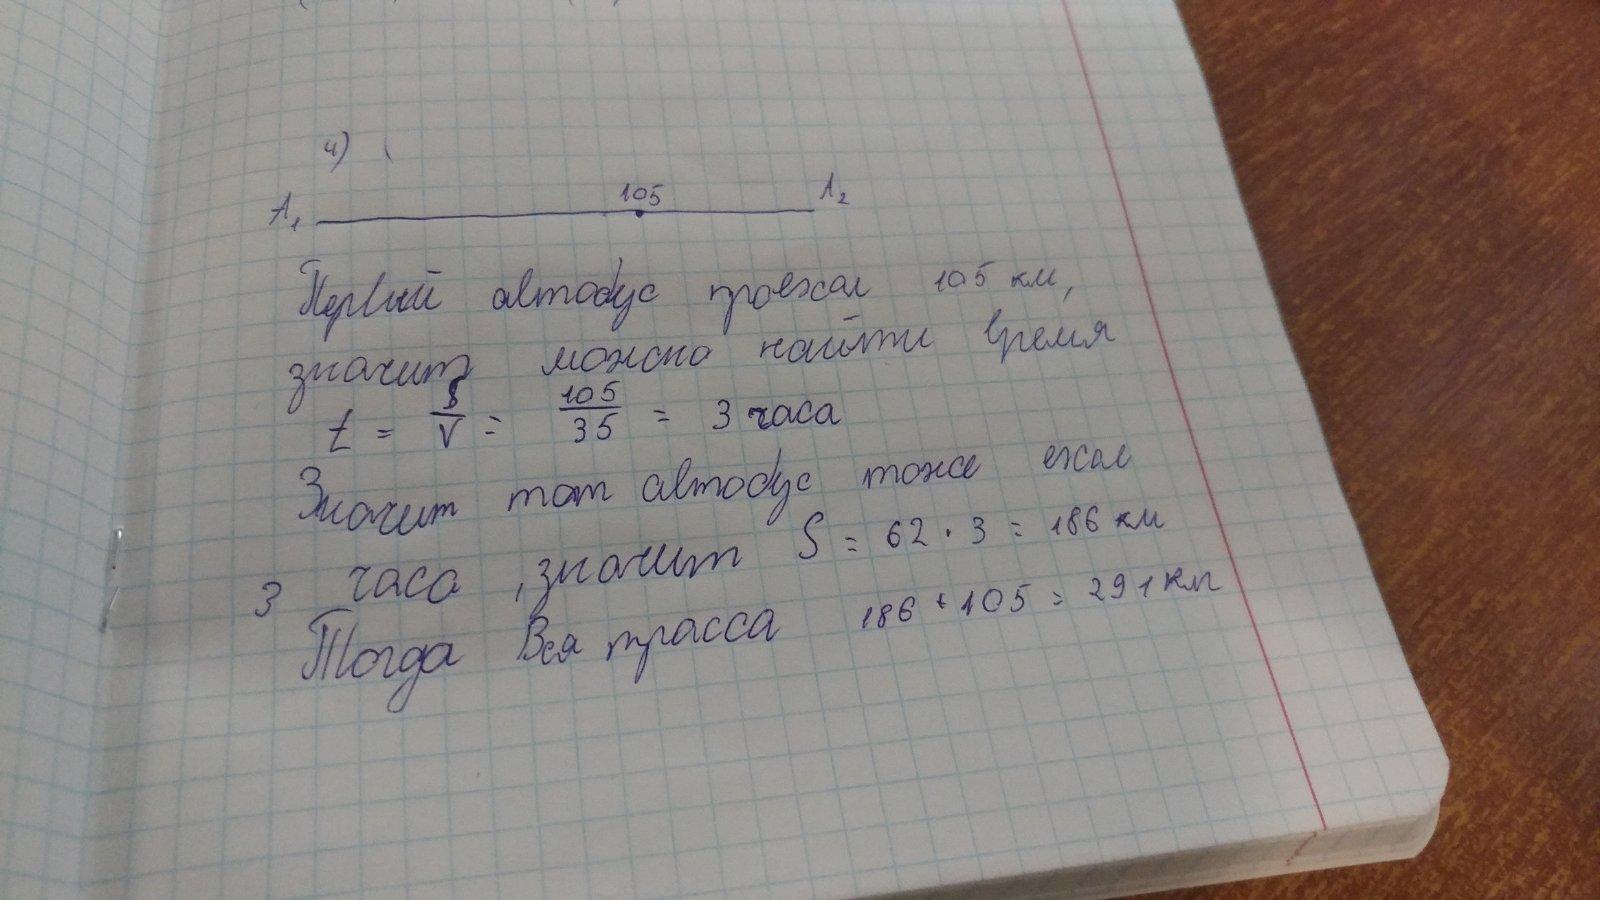 4)
A₁ 105 A₂
Первый автобус проехал 105 км,
значит можно найти время
t = S/V = 105/35 = 3 часа
Значит тот автобус тоже ехал
3 часа, значит S = 62 · 3 = 186 км
Тогда Вся трасса 186 + 105 = 291 км